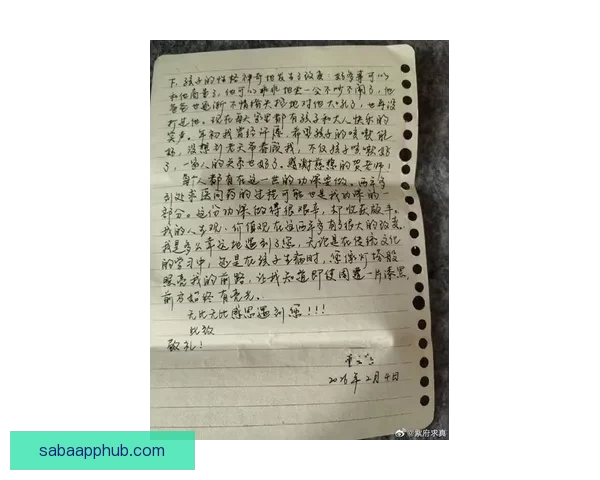 下,孩子的性格神奇地发生了改变:好多事可以
和他商量了,他可以乖乖相坐一会不吵不闹了,他
爸爸也逐渐不情绪失控地对他大吼了,也再没
打过他。现在每天家里都有孩子和大人快乐的
笑声。年初我曾经许愿,希望孩子的咳嗽能
好,没想到老天爷眷顾我,不仅孩子咳嗽好
了,一家人的关系也好了。感谢慈悲的贺老师!
每个人都有在这一世的功课要做。两年多
到处求医问药的过程可能也是我功课的一
部分。这份功课做得很艰辛,却收获颇丰。
我的人生观、价值观在这两年多有了很大的改变。
我是多么幸运地遇到了您,无论是在传统文化
的学习中,还是在孩子生病时,您像灯塔般
照亮我的前路,让我知道即使周遭一片漆黑,
前方始终有亮光。
无比无比感恩遇到您!!!
此致
敬礼!
年2月4日
@紫府求真
sabaapphub.com